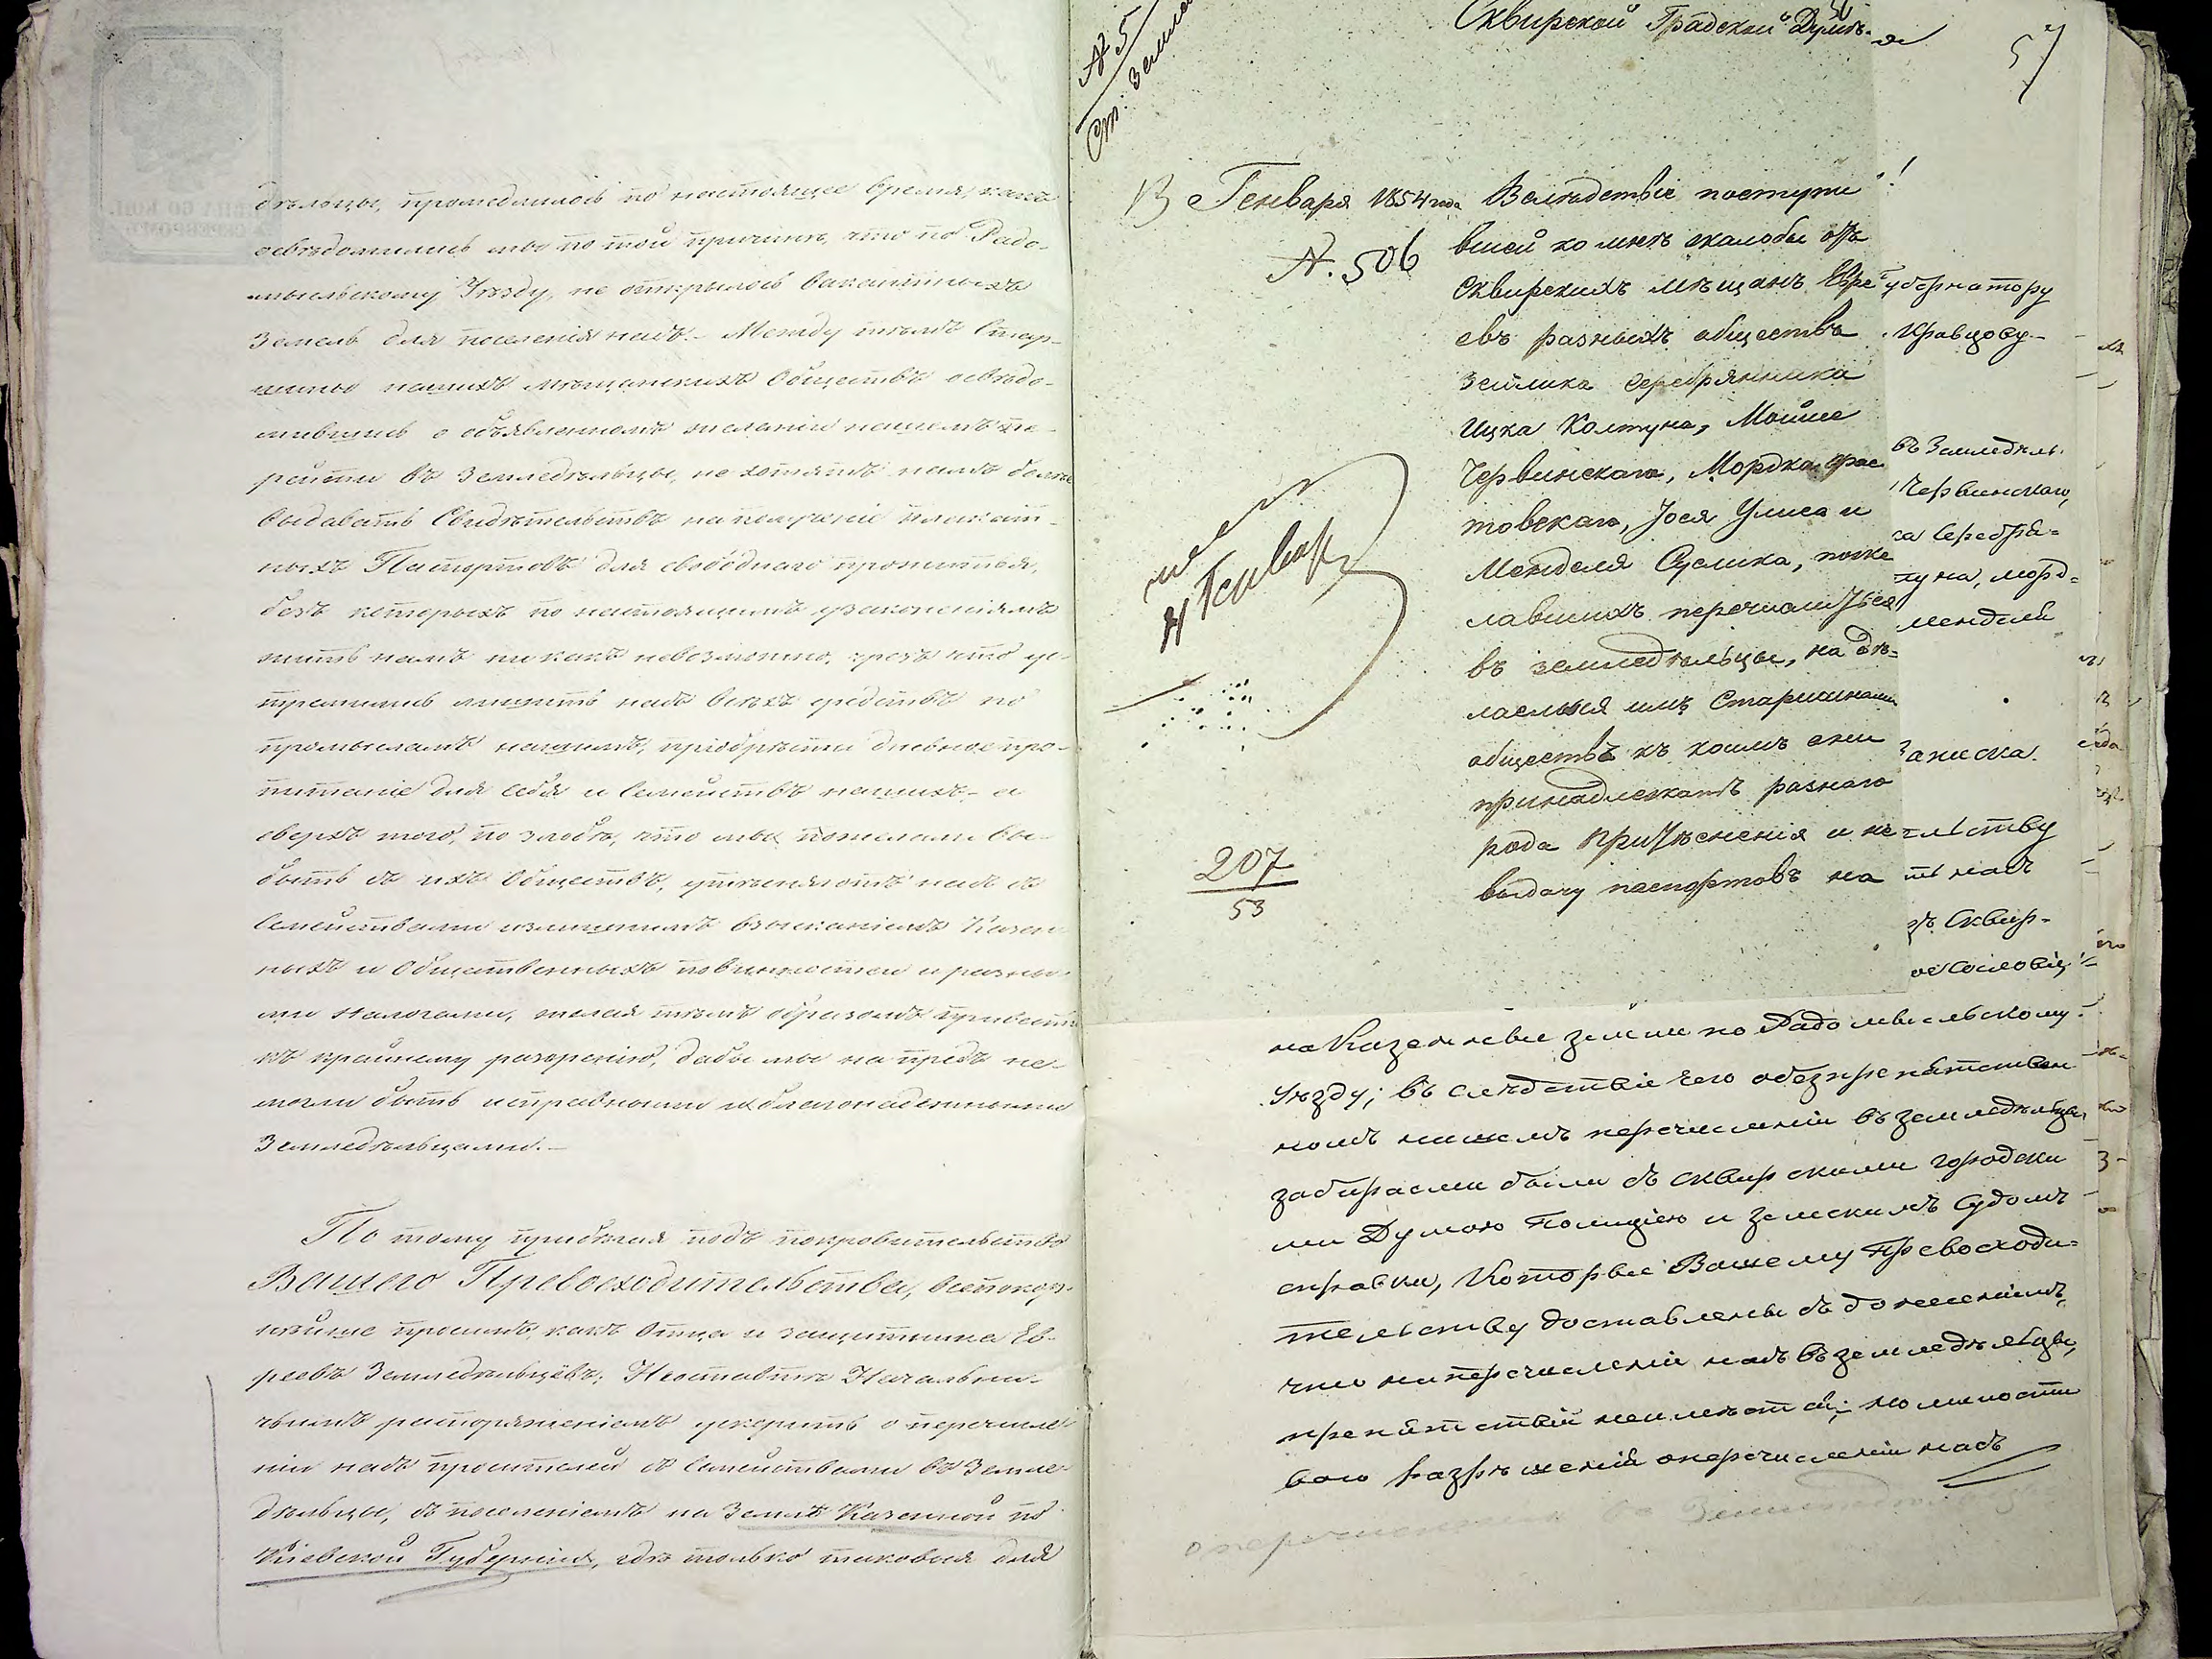 дѣльцы, промедлилось по настоящее время, какъ
освѣдомились мы по той причинѣ, что по Радо-
мысльскому Уѣзду, не открылось вакантныхъ
земель для поселенія насъ. Между тѣмъ Стар-
шины нашихъ мѣщанскихъ Обществъ освѣдо-
мившись о объявленномъ желаніи нашемъ пе-
рейти въ Земледѣльцы, не хотятъ намъ болѣе
выдавать Свидѣтельствъ на полученіе плакат-
ныхъ Паспортовъ для свободнаго пропитанія,
безъ которыхъ по настоящимъ узаконеніямъ
жить намъ никакъ невозможно, чрезъ что ус-
тремились лишить насъ всѣхъ средствъ по
промысламъ нашимъ, пріобрѣсти дневное про-
питаніе для себя и Семействъ нашихъ, а
сверхъ того, по злобѣ, что мы пожелали вы-
быть съ ихъ Обществъ, утѣсняютъ насъ съ
Семействами излишнимъ взысканіемъ Казен
ныхъ и Общественныхъ повинностей и разны-
ми налогами, желая тѣмъ образомъ привести
къ крайнему разоренію, дабы мы на предъ не-
могли быть исправными и благонадежными
Земледѣльцами.
По тому прибѣгая подъ покровительство
Вашего Превосходительства, всепокор-
нѣйше просимъ, какъ Отца и защитника Ев-
реевъ Земледѣльцевъ; Неоставить Начальни-
чьимъ распоряженіемъ ускорить о перечисле
ніи насъ просителей съ Семействами въ Земле-
дѣльцы, съ поселеніемъ на Землѣ Казенной по
Кіевской Губерніи, гдѣ только таковыя для
№ 5
Ст. Землед
Сквирской Градской Думѣ.
57
13 Генваря 1854 года
№. 506
Вслѣдствіе поступи
вшей ко мнѣ жалобы отъ
Сквирскихъ мѣщанъ Евре
евъ разныхъ обществъ
Зейлика Серебрянника
Ицка Колтуна, Мойше
Червинскаго, Мордка
товскаго, Іося Улиса и
Менделя Суслика, поже
лавшихъ перечислиться
въ земледѣльцы, на дѣ-
лаемыя имъ Старшинами
обществъ къ коимъ они
принадлежатъ разнаго
рода притѣсненія и не
выдачу паспортовъ на
Генвар
207
53
убернатору
Кравцову
въ Земледѣль
Червинскаго,
ка Серебря=
туна, морд=
Менделя
Записка.
тельству
ть насъ
Сквир-
ое Сословіе
на Казенные земли по Радомысльскому
Уѣзду; въ слѣдствіе чего обезпрепятствен
номъ нашемъ перечисленіи въ земледѣльцы
забираемы были съ Сквирскими городски
ми Думою Полиціею и Земскимъ Судомъ
справки, Которые Вашему Превосходи=
тельству доставлены съ донесеніемъ,
что на перечисленіи насъ въ земледѣльцы,
препятствій неимѣется; но милости
вого разрѣшенія оперечисленіи насъ
оперечисленіи